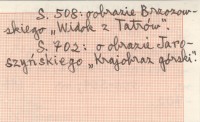 S. 508: o obrazie Brzozow-
skiego „Widok z Tatrów".
S. 702: o obrazie Jaro-
szyńskiego „Krajobraz górski".